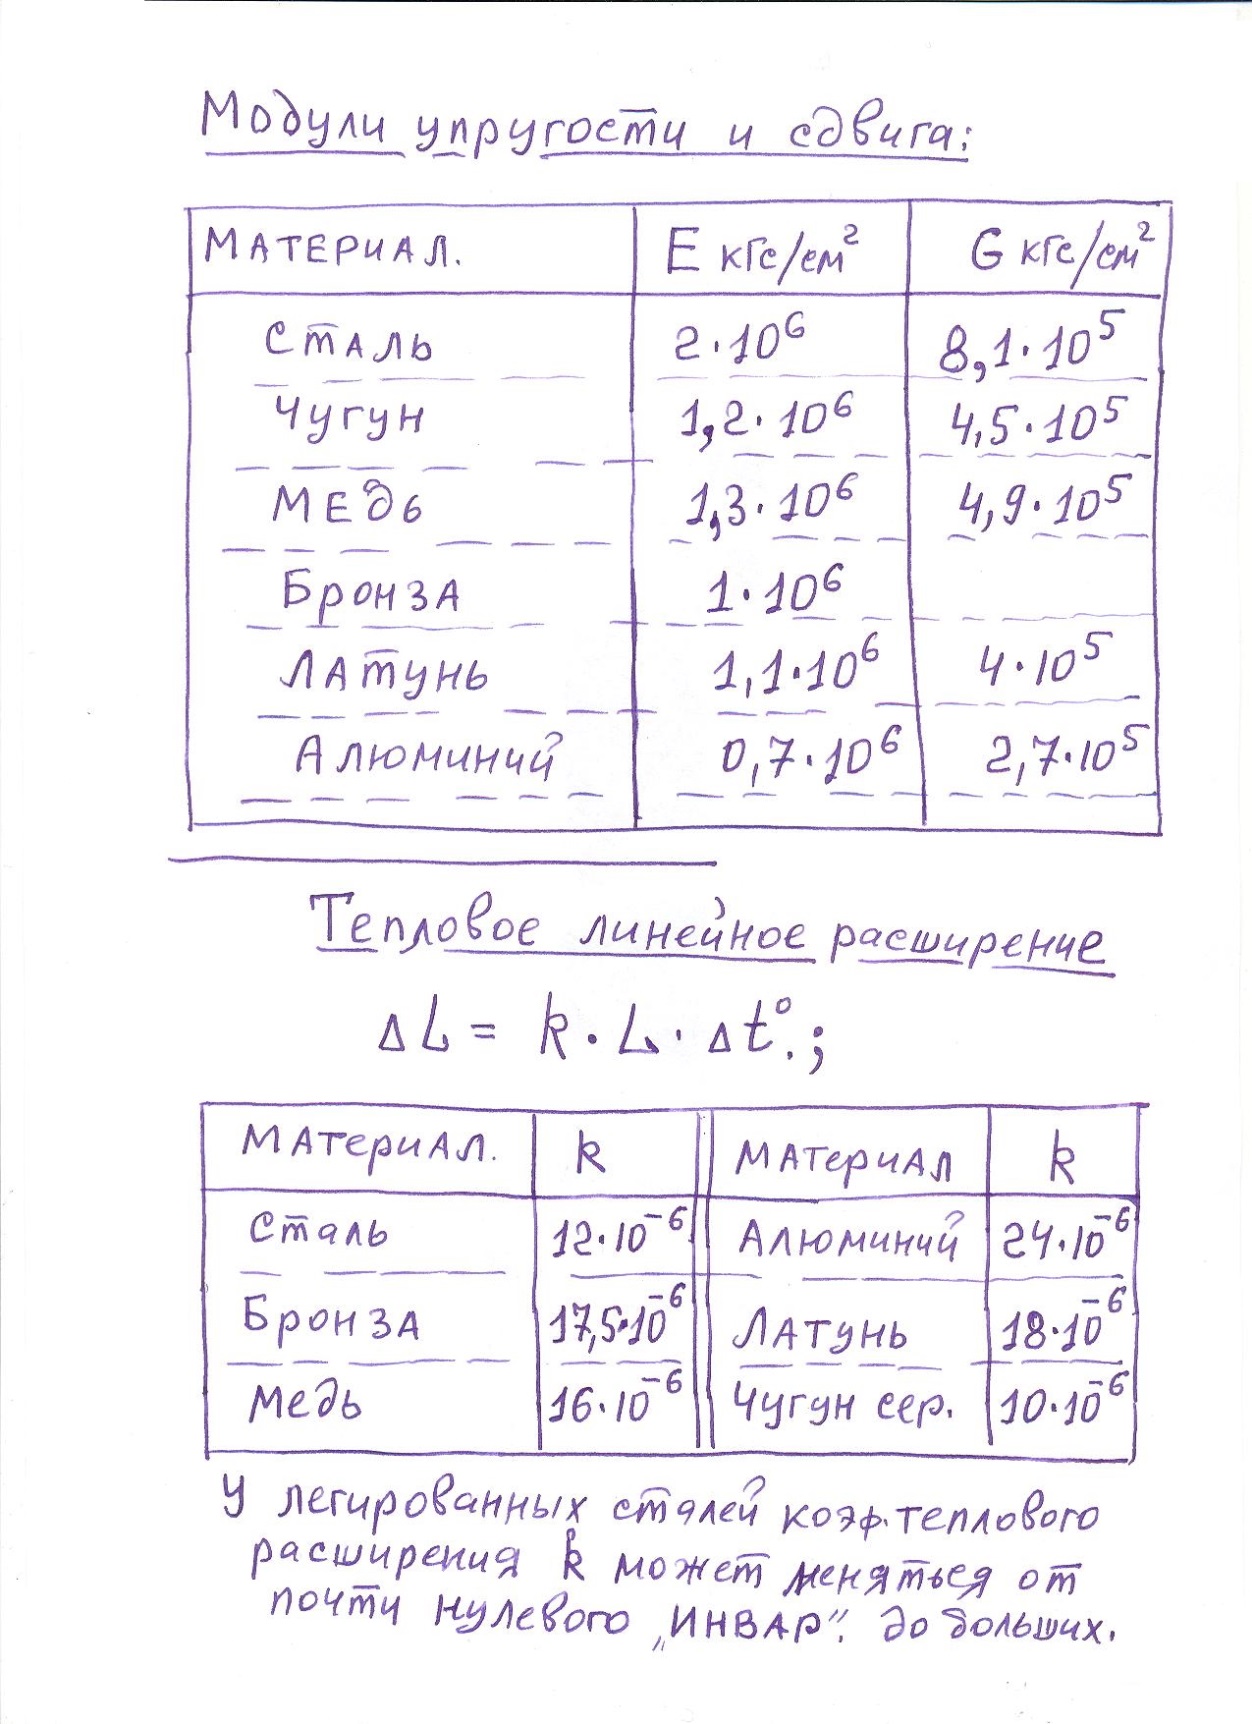 Модули упругости и сдвига:
МАТЕРИАЛ. E кгс/см² G кгс/см²
Сталь 2·10⁶ 8,1·10⁵
Чугун 1,2·10⁶ 4,5·10⁵
Медь 1,3·10⁶ 4,9·10⁵
Бронза 1·10⁶
Латунь 1,1·10⁶ 4·10⁵
Алюминий 0,7·10⁶ 2,7·10⁵
Тепловое линейное расширение
ΔL = k·L·Δt°.;
Материал. k Материал k
Сталь 12·10⁻⁶ Алюминий 24·10⁻⁶
Бронза 17,5·10⁻⁶ Латунь 18·10⁻⁶
Медь 16·10⁻⁶ Чугун сер. 10·10⁻⁶
У легированных сталей коэф. теплового
расширения k может меняться от
почти нулевого „ИНВАР“. до больших.